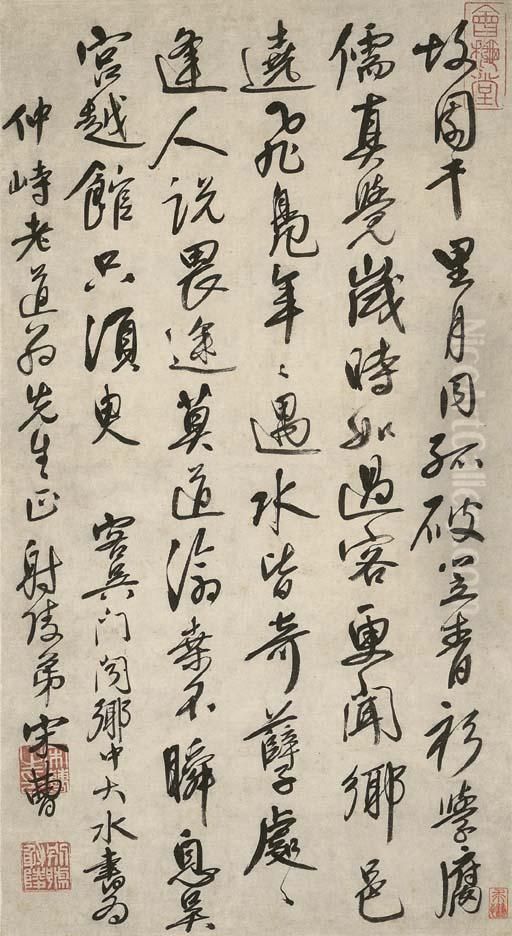 故園千里月同孤破笠青衫學腐
儒真覺歲時如過客更聞鄉邑
遶飛鳧年〻遇水皆奇孽處〻
逢人説畏途莫道滄桑不瞬息吳
宮越館只須臾
客吳門閱鄉中大水書為
仲峙老道翁先生正射陵弟宋曹
會稽堂